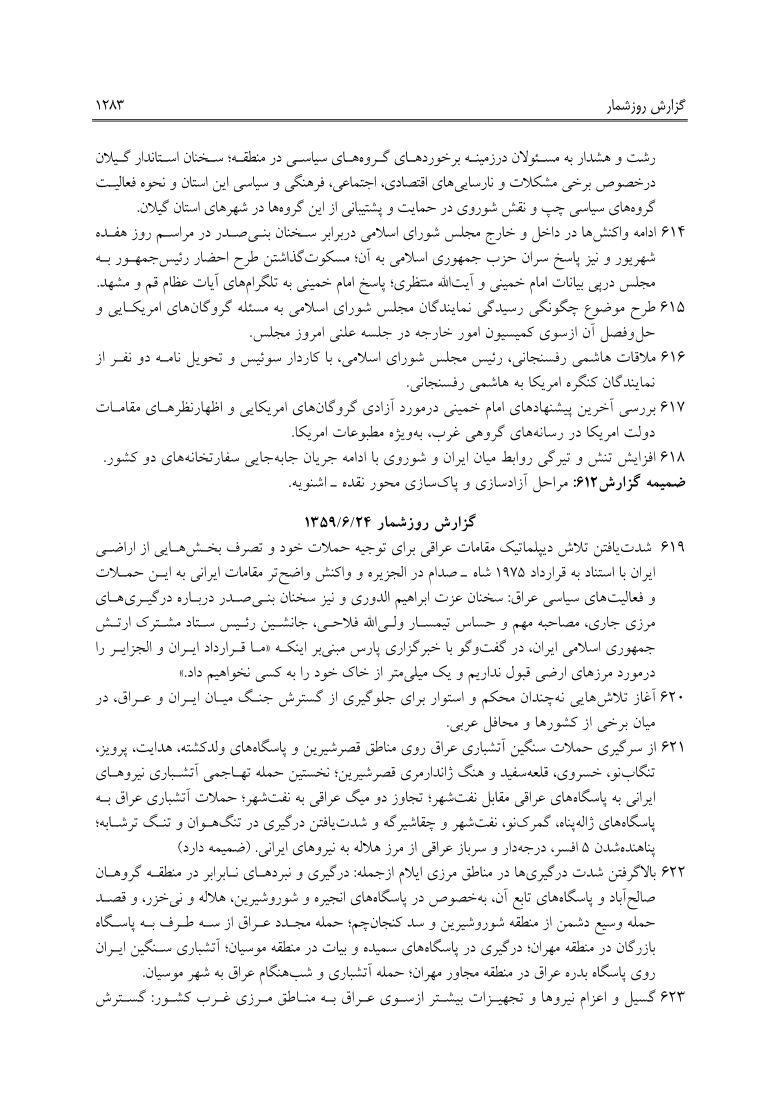 گزارش روزشمار ۱۲۸۳
رشت و هشدار به مسئولان درزمینه برخوردهای گروه‌های سیاسی در منطقه؛ سخنان استاندار گیلان
درخصوص برخی مشکلات و نارسایی‌های اقتصادی، اجتماعی، فرهنگی و سیاسی این استان و نحوه فعالیت
گروه‌های سیاسی چپ و نقش شوروی در حمایت و پشتیبانی از این گروه‌ها در شهرهای استان گیلان.
۶۱۴ ادامه واکنش‌ها در داخل و خارج مجلس شورای اسلامی دربرابر سخنان بنی‌صدر در مراسم روز هفده
شهریور و نیز پاسخ سران حزب جمهوری اسلامی به آن؛ مسکوت‌گذاشتن طرح احضار رئیس‌جمهور به
مجلس درپی بیانات امام خمینی و آیت‌الله منتظری؛ پاسخ امام خمینی به تلگرام‌های آیات عظام قم و مشهد.
۶۱۵ طرح موضوع چگونگی رسیدگی نمایندگان مجلس شورای اسلامی به مسئله گروگان‌های امریکایی و
حل‌وفصل آن ازسوی کمیسیون امور خارجه در جلسه علنی امروز مجلس.
۶۱۶ ملاقات هاشمی رفسنجانی، رئیس مجلس شورای اسلامی، با کاردار سوئیس و تحویل نامه دو نفر از
نمایندگان کنگره امریکا به هاشمی رفسنجانی.
۶۱۷ بررسی آخرین پیشنهادهای امام خمینی درمورد آزادی گروگان‌های امریکایی و اظهارنظرهای مقامات
دولت امریکا در رسانه‌های گروهی غرب، به‌ویژه مطبوعات امریکا.
۶۱۸ افزایش تنش و تیرگی روابط میان ایران و شوروی با ادامه جریان جابه‌جایی سفارتخانه‌های دو کشور.
ضمیمه گزارش۶۱۲: مراحل آزادسازی و پاک‌سازی محور نقده ـ اشنویه.
گزارش روزشمار ۱۳۵۹/۶/۲۴
۶۱۹ شدت‌یافتن تلاش دیپلماتیک مقامات عراقی برای توجیه حملات خود و تصرف بخش‌هایی از اراضی
ایران با استناد به قرارداد ۱۹۷۵ شاه ـ صدام در الجزیره و واکنش واضح‌تر مقامات ایرانی به این حملات
و فعالیت‌های سیاسی عراق: سخنان عزت ابراهیم الدوری و نیز سخنان بنی‌صدر درباره درگیری‌های
مرزی جاری، مصاحبه مهم و حساس تیمسار ولی‌الله فلاحی، جانشین رئیس ستاد مشترک ارتش
جمهوری اسلامی ایران، در گفت‌وگو با خبرگزاری پارس مبنی‌بر اینکه «ما قرارداد ایران و الجزایر را
درمورد مرزهای ارضی قبول نداریم و یک میلی‌متر از خاک خود را به کسی نخواهیم داد.»
۶۲۰ آغاز تلاش‌هایی نه‌چندان محکم و استوار برای جلوگیری از گسترش جنگ میان ایران و عراق، در
میان برخی از کشورها و محافل عربی.
۶۲۱ از سرگیری حملات سنگین آتشباری عراق روی مناطق قصرشیرین و پاسگاه‌های ولدکشته، هدایت، پرویز،
تنگاب‌نو، خسروی، قلعه‌سفید و هنگ ژاندارمری قصرشیرین؛ نخستین حمله تهاجمی آتشباری نیروهای
ایرانی به پاسگاه‌های عراقی مقابل نفت‌شهر؛ تجاوز دو میگ عراقی به نفت‌شهر؛ حملات آتشباری عراق به
پاسگاه‌های ژاله‌پناه، گمرک‌نو، نفت‌شهر و چقاشیرگه و شدت‌یافتن درگیری در تنگ‌هوان و تنگ ترشابه؛
پناهنده‌شدن ۵ افسر، درجه‌دار و سرباز عراقی از مرز هلاله به نیروهای ایرانی. (ضمیمه دارد)
۶۲۲ بالاگرفتن شدت درگیری‌ها در مناطق مرزی ایلام ازجمله: درگیری و نبردهای نابرابر در منطقه گروهان
صالح‌آباد و پاسگاه‌های تابع آن، به‌خصوص در پاسگاه‌های انجیره و شوروشیرین، هلاله و نی‌خزر، و قصد
حمله وسیع دشمن از منطقه شوروشیرین و سد کنجان‌چم؛ حمله مجدد عراق از سه طرف به پاسگاه
بازرگان در منطقه مهران؛ درگیری در پاسگاه‌های سمیده و بیات در منطقه موسیان؛ آتشباری سنگین ایران
روی پاسگاه بدره عراق در منطقه مجاور مهران؛ حمله آتشباری و شب‌هنگام عراق به شهر موسیان.
۶۲۳ گسیل و اعزام نیروها و تجهیزات بیشتر ازسوی عراق به مناطق مرزی غرب کشور: گسترش